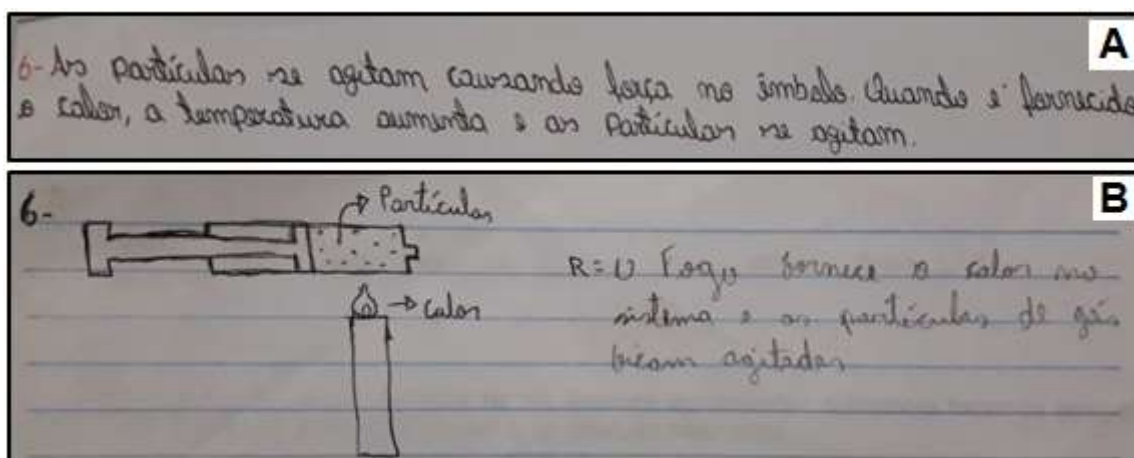 A
6- As partículas se agitam causando força no êmbolo. Quando é fornecido
o calor, a temperatura aumenta e as partículas se agitam.
B
6-
Partículas
calor
R = O Fogo fornece o calor no
sistema e as partículas de gás
ficam agitadas